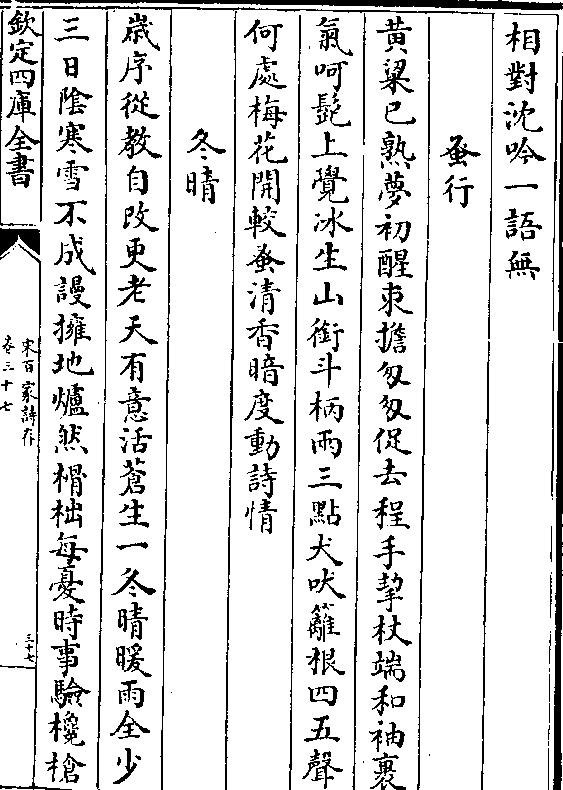 相對沈吟一語無
蚤行
黄粱已熟夢初醒束擔匆匆促去程手挈杖端和袖裹
氣呵髭上覺冰生山銜斗柄兩三點犬吠籬根四五聲
何處梅花開較蚤清香暗度動詩情
冬晴
嵗序從教自改更老天有意活蒼生一冬晴暖雨全少
三日隂寒雪不成謾擁地爐然榾柮每憂時事驗欃槍
欽定四庫全書
宋百家詩存
卷三十七
三十七